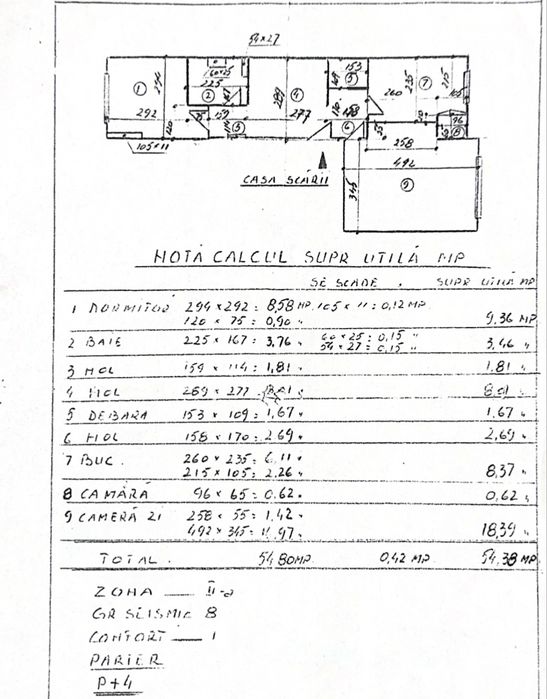 54×27
153
60×25
225
294
1
2
289
4
109
5
260
235
7
215
105
292
159
277
3
6
96
8
105×11
258
492
345
9
CASA SCĂRII
NOTĂ CALCUL SUPR UTILĂ MP
SE SCADE . SUPR UTILĂ MP
1 DORMITOR 294 × 292 = 8,58 MP. 105 × 11 = 0,12 MP.
120 × 75 = 0,90 " 9,36 MP
2 BAIE 225 × 167 = 3,76 " 60 × 25 = 0,15 "
54 × 27 = 0,15 " 3,46 "
3 HOL 159 × 114 = 1,81 " 1,81 "
4 HOL 289 × 277 8,01 "
5 DEBARA 153 × 109 = 1,67 " 1,67 "
6 HOL 158 × 170 = 2,69 " 2,69 "
7 BUC. 260 × 235 = 6,11 "
215 × 105 = 2,26 " 8,37 "
8 CAMARĂ 96 × 65 = 0,62 " 0,62 "
9 CAMERĂ ZI 258 × 55 = 1,42 "
492 × 345 = 97 " 18,39 "
TOTAL . 54,80 MP. 0,42 MP. 54,38 MP.
ZONA — II-a
GR SEISMIC 8
CONFORT — 1
PARIER
P+4